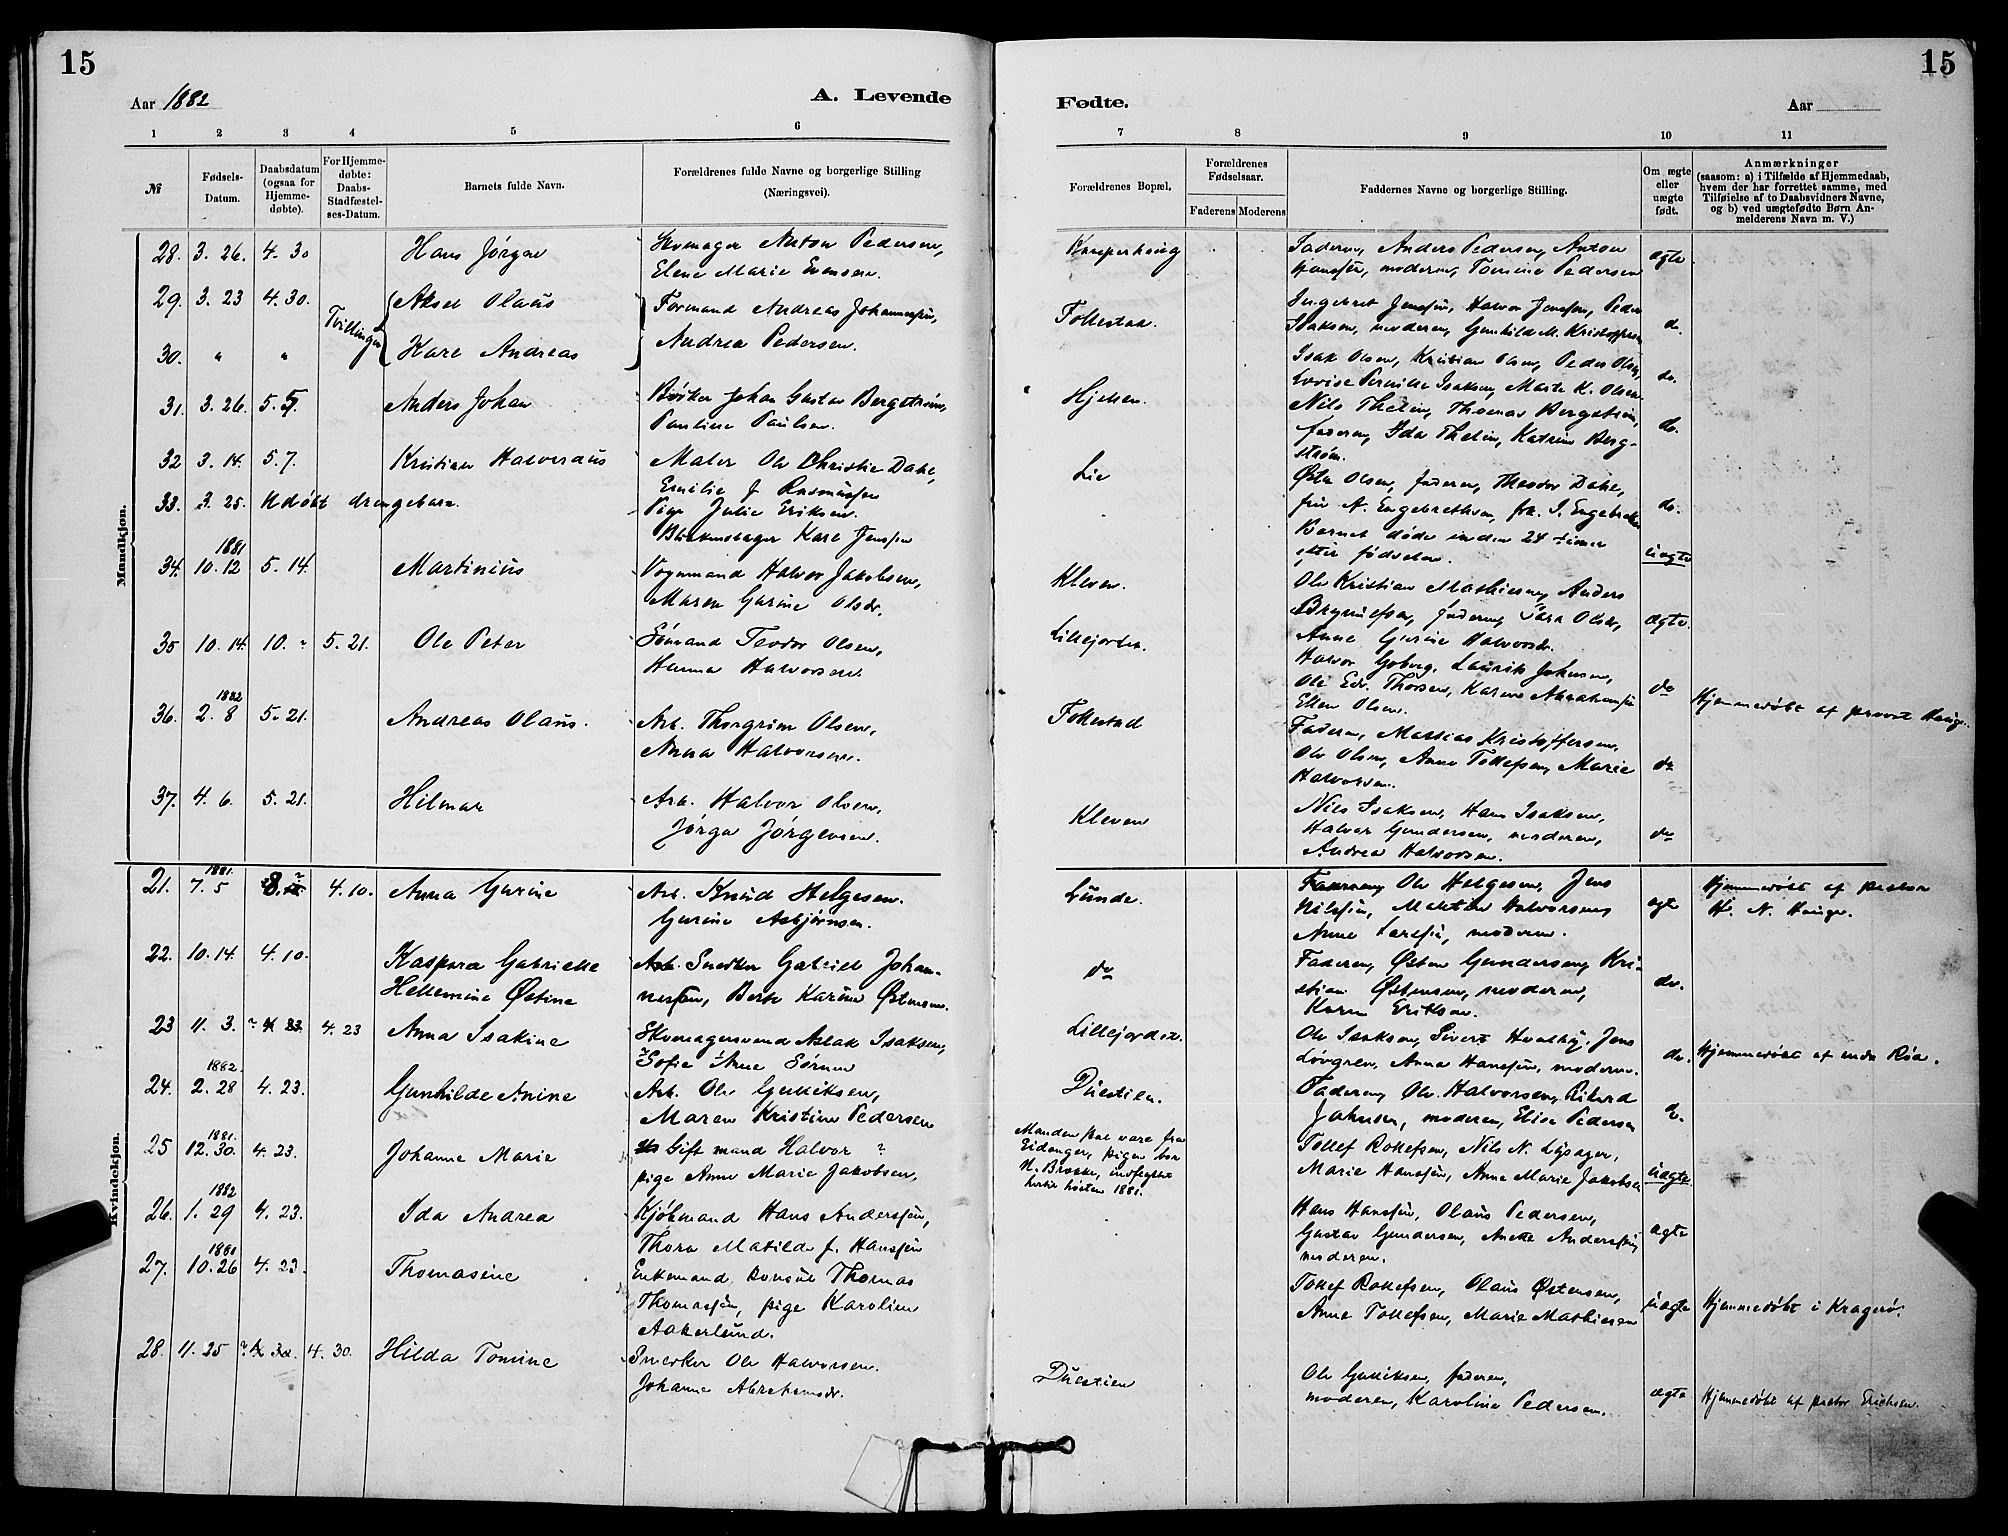 15
15
Aar 1882
A. Levende
Fødte.
Aar
1 2 3 4 5 6
7 8 9 10 11
№
Fødsels-
Datum.
Daabsdatum
(ogsaa for
Hjemme-
døbte).
For Hjemme-
døbte:
Daabs-
Stadfæstel-
ses-Datum.
Barnets fulde Navn.
Forældrenes fulde Navne og borgerlige Stilling
(Næringsvei).
Forældrenes Bopæl.
Forældrenes
Fødselsaar.
Faderens Moderens
Faddernes Navne og borgerlige Stilling.
Om ægte
eller
uægte
født.
Anmærkninger
(saasom: a) i Tilfælde af Hjemmedaab,
hvem der har forrettet samme, med
Tilføielse af to Daabsvidners Navne,
og b) ved uægtefødte Børn An-
melderens Navn m. V.)
Mandkjøn.
28. 3. 26. 4. 30 Hans Jørgen Skomager Anton Pedersen,
Elene Marie Evensen.
Faderen, Anders Pedersen, Anton
Hanssen, moderen, Tomine Pedersen
ægte
29. 3. 23 4. 30. Tvillinger Aksel Olaus Formand Andreas Johannessen,
Andrea Pedersen.
Follestad.
Ingebret Jenssen, Halvor Jenssen, Peder
Isaksen, moderen, Gunhild M. Kristoffersen
do.
30. " " Karl Andreas
Isak Olsen, Kristian Olsen, Peder Olsen,
Lovise Pernille Isaksen, Marte K. Olsen.
do.
31. 3. 26. 5. 5. Anders Johan Johan Gustav Bergstrøm,
Pauline Paulsen.
Hjellen.
Nils Thelin, Thomas Bergstrøm,
faderen, Ida Thelin, Katrine Berg-
strøm.
do.
32 3. 14. 5. 7. Kristian Halvoraus Maler Ole Christie Dahl,
Emilie f. Rasmussen
Lie
Østen Olsen, faderen, Theodor Dahl,
fru A. Engebrethsen, frk. I. Engebrethsen
do.
33. 3. 25. Udøbt drengebarn. Pige Julie Eriksen.
Blikkenslager Karl Jenssen
Barnet døde inden 24 timer
efter fødselen.
uægte
34. 1881 10. 12 5. 14. Martinius Vognmand Halvor Jakobsen,
Maren Gurine Olsdr.
Kleven.
Ole Kristian Mathiesen, Anders
Brynulfsen, faderen, Sara Olsen,
Anne Gurine Halvorsdr.
ægte.
35 10. 14. 10. " 5. 21. Ole Peter Sømand Teodor Olsen,
Hanna Halvorsen.
Lillejordet.
Halvor Goberg, Laurits Johnsen,
Ole Edv. Thorsen, Karen Abrahamsen
Ellen Olsen.
do
Hjemmedøbt af provst Hauge.
36. 1882 2. 8 5. 21. Andreas Olaus. Arb. Thorgrim Olsen,
Anna Halvorsen.
Follestad
Faderen, Mathias Kristoffersen,
Ole Olsen, Anne Tollefsen, Marie
Halvorsen.
do
37. 4. 6. 5. 21. Hilmar Arb. Halvor Olsen,
Jørga Jørgensen.
Kleven
Nils Isaksen, Hans Isaksen,
Halvor Gundersen, moderen,
Andrea Halvorsen.
do
Kvindekjøn.
21. 1881. 7. 5 8. 4. 10. Anna Gurine Arb. Knud Helgesen.
Gurine Asbjørnsen.
Lunde.
Faderen, Ole Helgesen, Jens
Nilssen, Mathea Halvorsen,
Anne Larsen, moderen.
ægte
Hjemmedøbt af pastor
H. N. Hauge.
22. 10. 14. 4. 10. Kaspara Gabrielle
Hellemine Østine
Snedker Gabriel Johan-
nessen, Berte Karine Østensen.
do
Faderen, Østen Gundersen, Kri-
stian Østensen, moderen,
Karen Eriksen.
do.
23 11. 3. 4. 23 Anna Isakine Skomagersvend Aslak Isaksen,
Sofie Anne Sørum
Lillejordet.
Ole Isaksen, Sivert Hvalby, Jens
Løvgren, Anna Hanssen, moderen.
do.
Hjemmedøbt af
24. 1882. 2. 28 4. 23. Gunhilde Anine Arb. Ole Gulliksen,
Maren Kristine Pedersen
Duestien.
Faderen, Ole Halvorsen, Rikard
Johnsen, moderen, Elise Pedersen
do.
25 1881. 12. 30. 4. 23. Johanne Marie Gift mand Halvor ?
pige Anne Marie Jakobsen,
Manden skal være fra
Eidanger, pigen bor
N. Brække, indflyttet
hertil høsten 1881.
Tollef Rollefsen, Nils N. Lysager,
Marie Hanssen, Anne Marie Jakobsen
uægte.
26. 1882 1. 29 4. 23. Ida Andrea Kjøbmand Hans Anderssen,
Thora Matilde f. Hanssen
Hans Hanssen, Olaus Pedersen,
Gustav Gundersen, Anette Anderssen,
moderen.
ægte
27. 10. 26 4. 23. Thomasine Enkemand, konsul Thomas
Thomassen, pige Karoline
Aakerlund.
Tollef Rollefsen, Olaus Østensen,
Anne Tollefsen, Marie Mathiesen
uægte
Hjemmedøbt i Kragerø.
28. 11. 25 4. 30. Hilda Tomine Snedker Ole Halvorsen.
Johanne Abrahamsdr.
Duestien
Ole Gulliksen, faderen,
moderen, Karoline Pedersen.
ægte
Hjemmedøbt af pastor Erichsen.